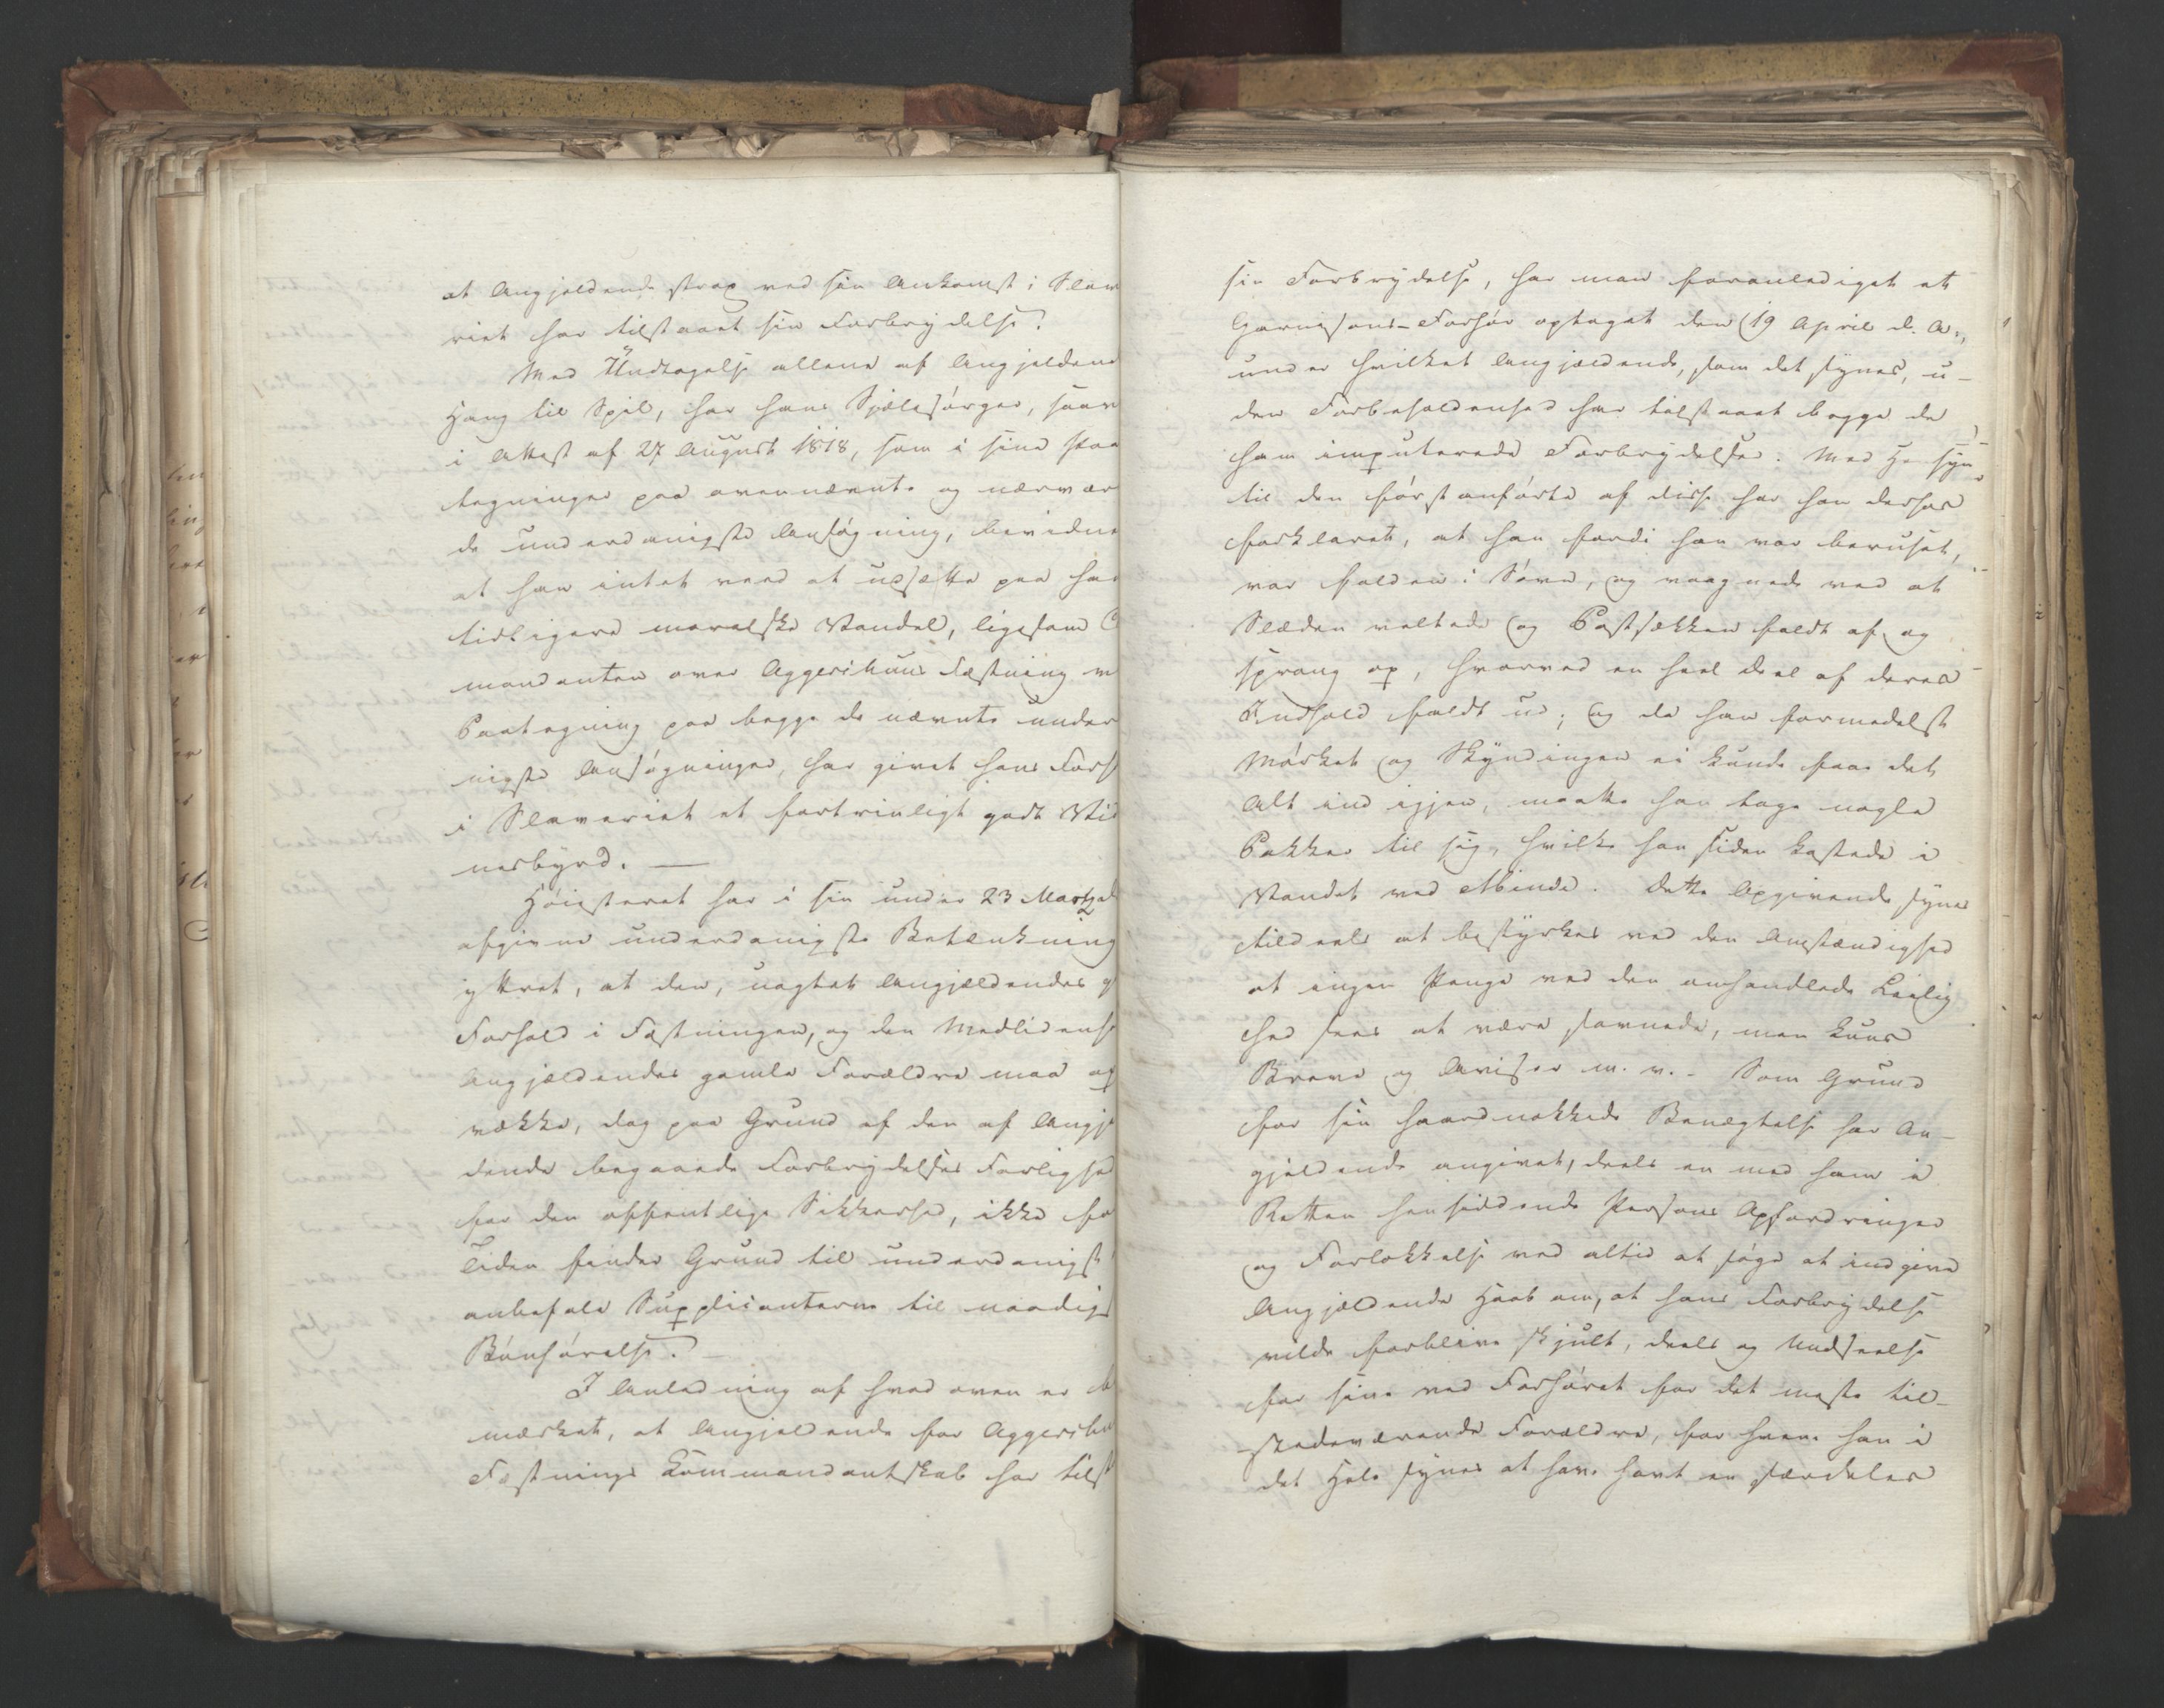 at Angjeldende strax ved sin Ankomst i Slav
riet har tilstaaet sin Forbrydelse.
Med Undtagelse allene af Angjeldend
Hang til Spil, har hans Sjelesørger, saav
i Attest af 27 August 1818, som i sine Paa
tegninger paa ovennævnte og nærvær
de underdanigste Ansøgning, bevidne
at han intet veed at udsætte paa ha
tidligere moralske Vandel, ligesom C
mandanten over Aggershuus Fæstning v
Paategning paa begge de nævnte under
nigste Ansøgninger, har givet hans Forh
i Slaveriet et fortrinligt godt Vid
nesbyrd. —
Høiesteret har i sin under 23 Marts d
afgivne underdanigste Betænkning
yttret, at den, uagtet Angjældendes g
Forhold i Fæstningen, og den Medlidenh
Angjældendes gamle Forældre maa op
vække, dog paa Grund af den af Angje
dende begaaede Forbrydelses Farlighed
for den offentlige Sikkerhed, ikke fo
Tiden finder Grund til underdanigst
anbefale Supplicanterne til naadigst
Bønhørelse. —
I Anledning af hvad oven er be
mærket, at Angjeldende for Aggershu
Fæstnings Kommandantskab har tilst
sin Forbrydelse, har man foranlediget et
Garnisons-Forhør optaget den 19 April d. A.,
under hvilket Angjældende, som det synes, u-
den Forbeholdenhed har tilstaaet begge de
ham imputerede Forbrydelser. Med Hensyn
til den først anførte af disse har han derhos
forklaret, at han fordi han var beruset,
var falden i Søvn, og vaagnede ved at
Slæden veltede og Postsækken faldt af og
sprang op, hvorved en heel Deel af deres
Indhold faldt ud; og da han formedelst
Mørket og Skyndingen ei kunde faae det
Alt ind igjen, maatte han tage nogle
Pakker til sig, hvilke han siden kastede i
Vandet ved Minde. Dette Opgivende synes
tildeels at bestyrkes ved den Omstændighed
at ingen Penge ved den omhandlede Leilig
hed sees at være savnede, men kuns
Breve og Aviser m. v. - Som Grund
for sin haardnakkede Benegtelse har An-
gjeldende angivet, deels en med ham i
Retten hensiddende Persons Opfordringer
og Forlokkelse ved altid at søge at indgive
Angjældende Haab om, at hans Forbrydelse
vilde forblive skjult, deels og Undseelse
for sine ved Forhøret for det meste til-
stedeværende Forældre, for hvem han i
det Hele synes at have havt en særdeles